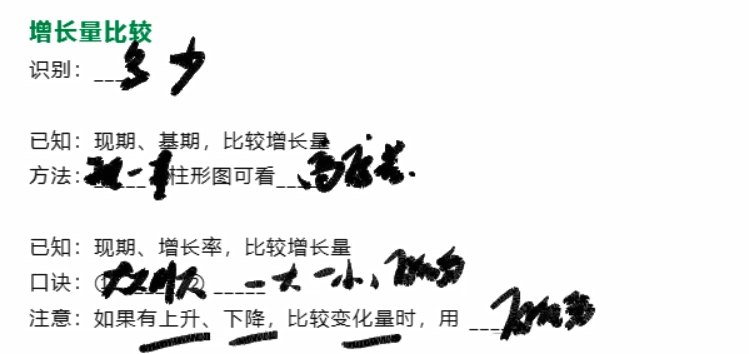 增长量比较
识别：___多少
已知：现期、基期，比较增长量
方法：现一基 柱形图可看___高度差.
已知：现期、增长率，比较增长量
口诀：① 大大则大 ② _____一大一小，
注意：如果有上升、下降，比较变化量时，用 ___